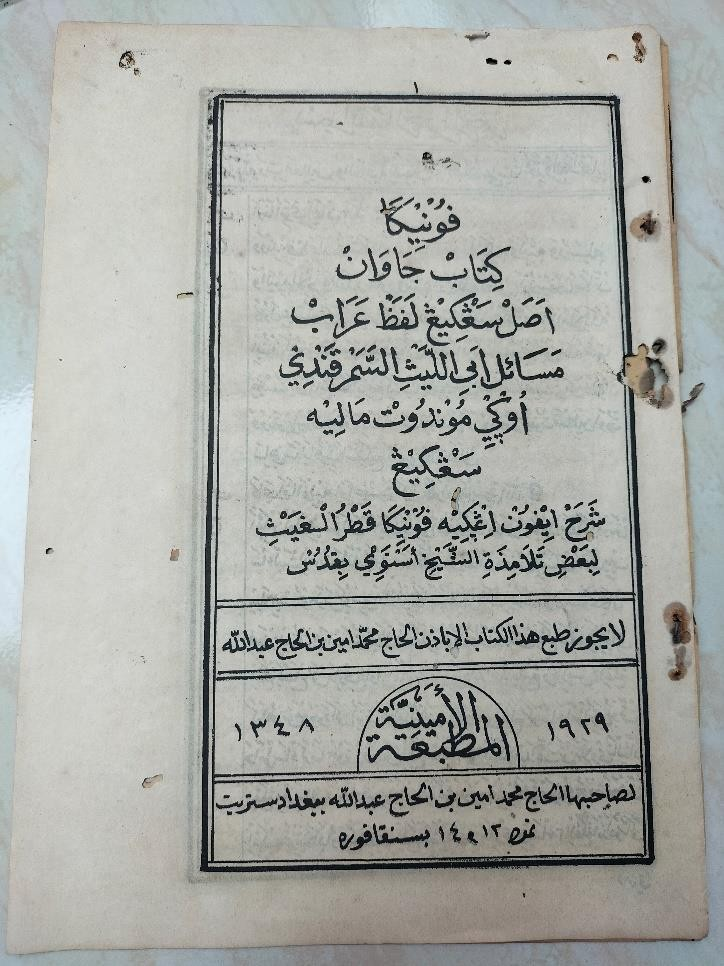 ١
فُوْنِيْكَا
كِتَابْ جَاوَانْ
اَصَلْ سَڠْكِيْڠْ لَفَظْ عَرَابْ
مَسَائِل اَبِي اللَّيْثِ السَّمَرْقَنْدِيْ
اُوْكِيْ مُوْندُوْت مَالِيْه
سَڠْكِيْڠْ
شَرَحْ ايْفُوْن اِڠْكِيْه فُوْنِيْكَا قَطْرُ الْغَيْثِ
لِبَعْضِ تَلَامِذَةِ الشَّيْخِ اَسْنَوِيْ بِقُدُسْ
لايجوز طبع هذا الكتاب الا باذن الحاج محمّد امين بن الحاج عبدالله
١٩٢٩ المطبعة الأمينية ١٣٤٨
لصاحبها الحاج محمد امين بن الحاج عبدالله ببغداد ستريت
نمره ١٢ و ١٤ بسنقافوره